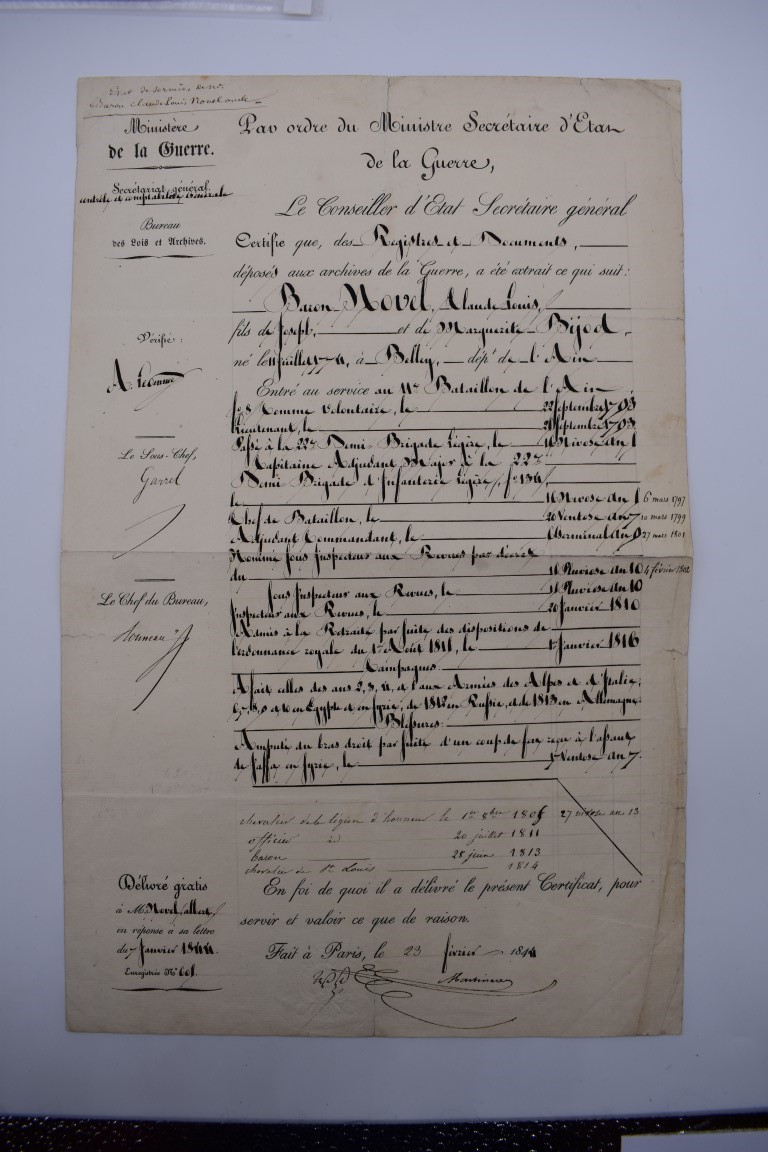 Etat de services de Mr
Baron Claude Louis Novel
Ministère
de la Guerre.
Secrétariat général.
contrôle et comptabilité Générale
Bureau
des Lois et Archives.
Vérifié :
Le Sous-Chef,
Garrel
Le Chef du Bureau,
Par ordre du Ministre Secrétaire d'Etat
de la Guerre,
Le Conseiller d'Etat Secrétaire général
Certifie que, des Registres et Documents,
déposés aux archives de la Guerre, a été extrait ce qui suit :
Baron Novel, Claude Louis,
fils de Joseph, et de Marguerite Bijod,
né le juillet à Belley, dépt de l'Ain
Entré au service au Bataillon de l'Ain
Comme Volontaire, le 22 Septembre 1793
Lieutenant, le Septembre 1793
Passé à la 22e Demi-Brigade légère, le Nivose an
Capitaine Adjudant Major à la 22e
Demi Brigade d'Infanterie légère,
le 16 Nivose an 6 mars 1797
Chef de Bataillon, le 20 Ventose an 7 10 mars 1799
Adjudant Commandant, le Germinal an 9 27 mars 1801
Nommé Sous Inspecteur aux Revues par décret
du Pluviose an 10 4 février 1802
Sous Inspecteur aux Revues, le Pluviose an 10
Inspecteur aux Revues, le 20 Janvier 1810
Admis à la Retraite par suite des dispositions de
l'ordonnance royale du 1er Août le 1er Janvier 1816
Campagnes.
A fait celles des ans 2, 3, 4, et aux Armées des Alpes et d'Italie;
6, 7, 8, 9 et 10 en Egypte et en Syrie; de 1812 en Russie, et de 1813 en Allemagne.
Blessures.
Amputé du bras droit par suite d'un coup de feu reçu à l'assaut
de Jaffa en Syrie, le Ventose an 7.
chevalier de la légion d'honneur le 1er 8bre 180 27 nivose an 13
officier id 20 juillet 1811
baron 28 juin 1813
chevalier de St Louis 1814
En foi de quoi il a délivré le présent Certificat, pour
servir et valoir ce que de raison.
Fait à Paris, le 23 février 1844
Martineau
Délivré gratis
à Mr Novel, Albert,
en réponse à sa lettre
du 7 Janvier 1844.
Enregistrée No